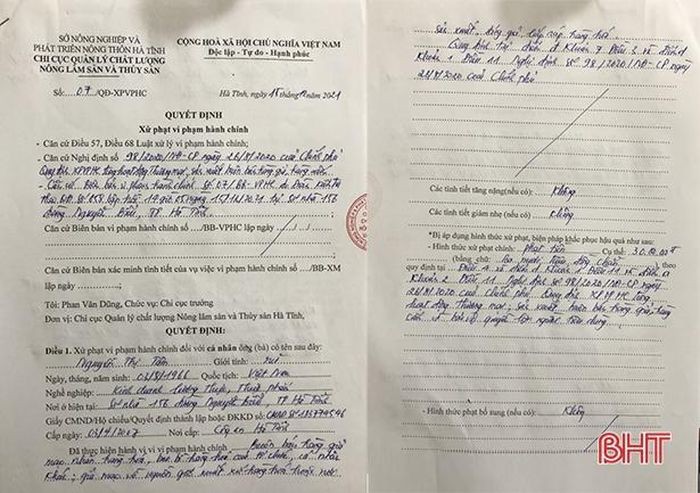 SỞ NÔNG NGHIỆP VÀ
PHÁT TRIỂN NÔNG THÔN HÀ TĨNH
CHI CỤC QUẢN LÝ CHẤT LƯỢNG
NÔNG LÂM SẢN VÀ THỦY SẢN
CỘNG HOÀ XÃ HỘI CHỦ NGHĨA VIỆT NAM
Độc lập - Tự do - Hạnh phúc
Số: 07 /QĐ-XPVPHC
Hà Tĩnh, ngày 15 tháng năm 2021
QUYẾT ĐỊNH
Xử phạt vi phạm hành chính
- Căn cứ Điều 57, Điều 68 Luật xử lý vi phạm hành chính;
- Căn cứ Nghị định số 98/2020/NĐ-CP ngày 26/8/2020 của Chính phủ
Quy định XPVPHC trong hoạt động thương mại, sản xuất buôn bán hàng giả, hàng cấm
- Căn cứ Biên bản vi phạm hành chính số 07/BB-VPHC do
lập hồi 19 giờ 05 ngày tại số nhà 156
đường Nguyễn Biểu, TP Hà Tĩnh.
Căn cứ Biên bản vi phạm hành chính số /BB-VPHC lập ngày / /
Căn cứ Biên bản xác minh tình tiết của vụ việc vi phạm hành chính số /BB-XM
lập ngày / ;
Tôi: Phan Văn Dũng, Chức vụ: Chi cục trưởng
Đơn vị: Chi cục Quản lý chất lượng Nông lâm sản và Thủy sản Hà Tĩnh,
QUYẾT ĐỊNH:
Điều 1. Xử phạt vi phạm hành chính đối với cá nhân ông (bà) có tên sau đây:
Nguyễn Thị Tâm Giới tính: nữ
Ngày, tháng, năm sinh: 03/8/1966 Quốc tịch: Việt Nam
Nghề nghiệp: Kinh doanh lương thực, thực phẩm
Nơi ở hiện tại: Số nhà 156 đường Nguyễn Biểu, TP Hà Tĩnh
Giấy CMND/Hộ chiếu/Quyết định thành lập hoặc ĐKKD số: CMND số
Cấp ngày: 03/4/2007 Nơi cấp: Công an Hà Tĩnh
Đã thực hiện hành vi vi phạm hành chính: Buôn bán hàng giả
mạo nhãn hàng hóa, bao bì hàng hóa của tổ chức, cá nhân
khác; giả mạo về nguồn gốc xuất xứ hàng hóa hoặc nơi
sản xuất, đóng gói, lắp ráp hàng hóa.
Quy định tại điểm d Khoản 7 Điều 3 và điểm
Khoản 1 Điều 11 Nghị định số 98/2020/NĐ-CP ngày
26/8/2020 của Chính phủ
Các tình tiết tăng nặng(nếu có): Không
Các tình tiết giảm nhẹ (nếu có): Không
*Bị áp dụng hình thức xử phạt, biện pháp khắc phục hậu quả như sau:
- Hình thức xử phạt chính: phạt tiền Cụ thể:
(bằng chữ: Ba mươi triệu đồng chẵn), theo
quy định tại Điều 4 và điểm Khoản 1 Điều 11 và điểm a
Khoản 2 Điều 11 Nghị định số 98/2020/NĐ-CP ngày
26/8/2020 của Chính phủ Quy định XPVPHC trong
hoạt động thương mại, sản xuất buôn bán hàng giả, hàng
cấm và bảo vệ quyền lợi người tiêu dùng.
- Hình thức phạt bổ sung (nếu có): Không
BHT